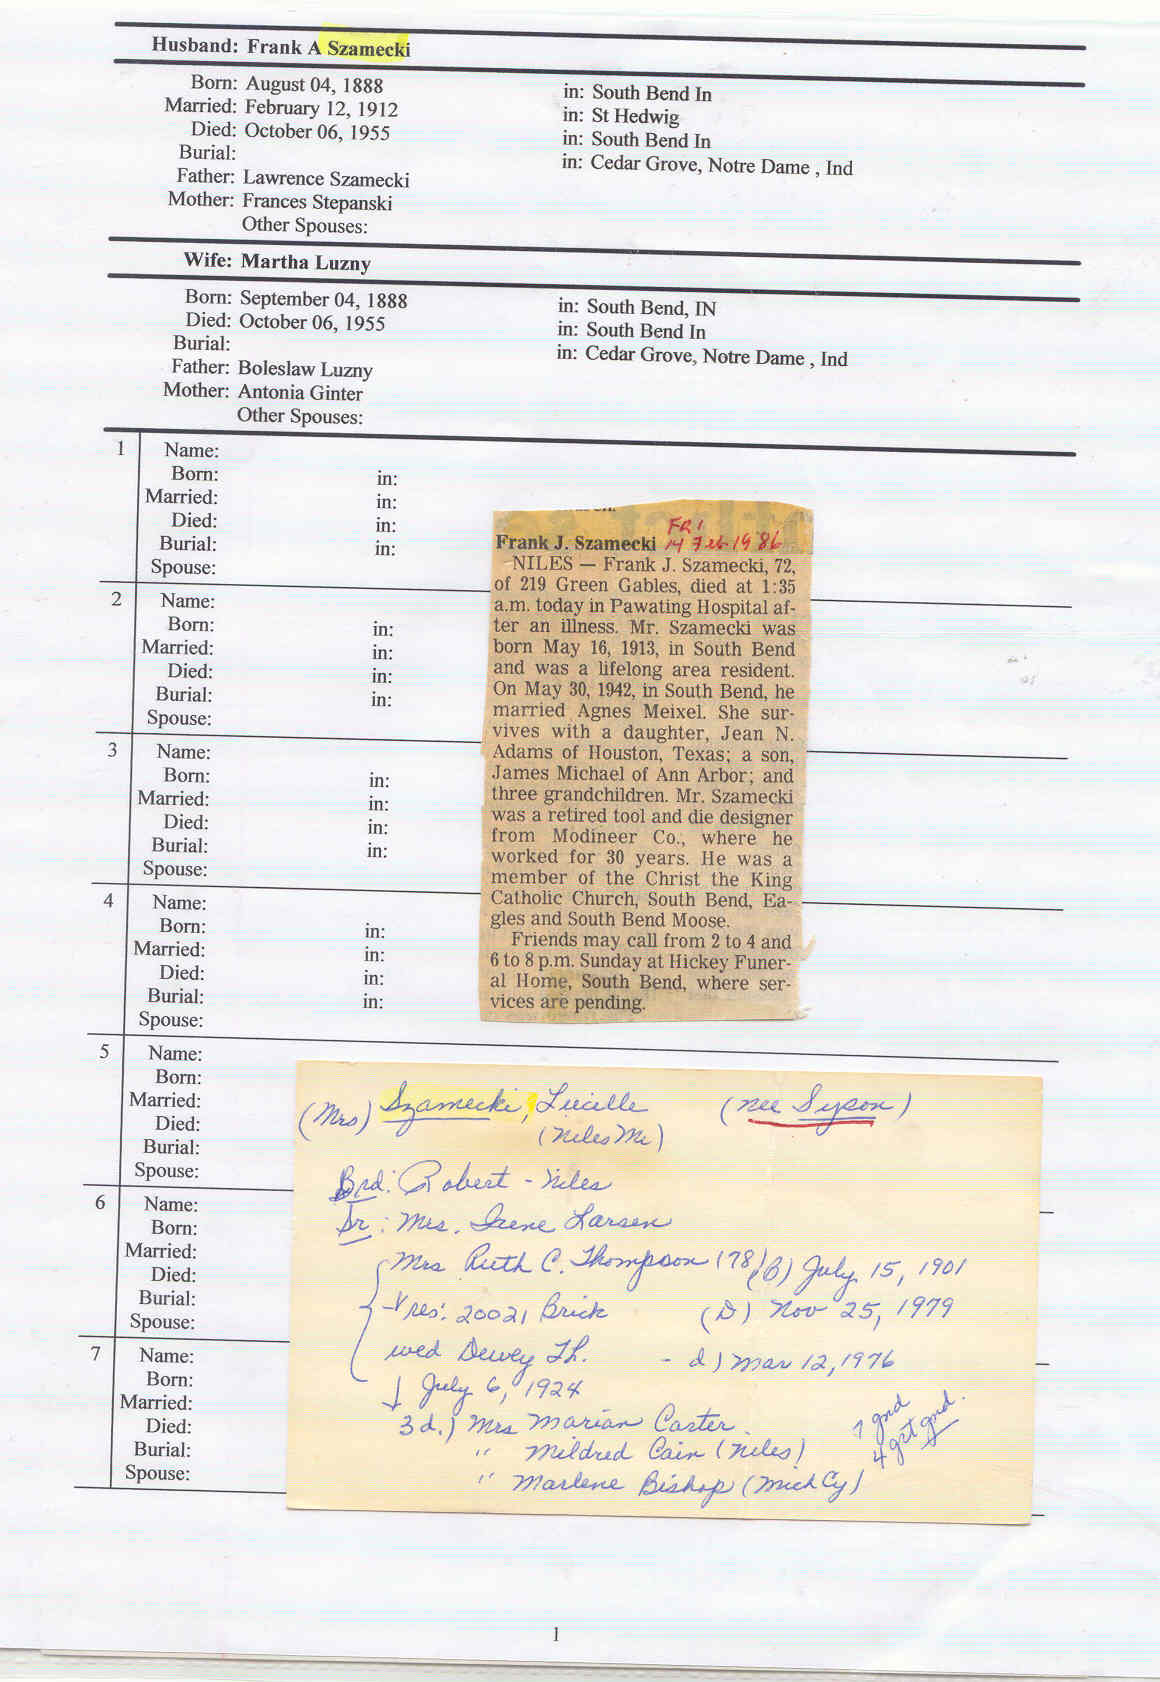 Husband: Frank A Szamecki
Born: August 04, 1888 in: South Bend In
Married: February 12, 1912 in: St Hedwig
Died: October 06, 1955 in: South Bend In
Burial: in: Cedar Grove, Notre Dame , Ind
Father: Lawrence Szamecki
Mother: Frances Stepanski
Other Spouses:
Wife: Martha Luzny
Born: September 04, 1888 in: South Bend, IN
Died: October 06, 1955 in: South Bend In
Burial: in: Cedar Grove, Notre Dame , Ind
Father: Boleslaw Luzny
Mother: Antonia Ginter
Other Spouses:
1 Name:
Born: in:
Married: in:
Died: in:
Burial: in:
Spouse:
2 Name:
Born: in:
Married: in:
Died: in:
Burial: in:
Spouse:
3 Name:
Born: in:
Married: in:
Died: in:
Burial: in:
Spouse:
4 Name:
Born: in:
Married: in:
Died: in:
Burial: in:
Spouse:
5 Name:
Born:
Married:
Died:
Burial:
Spouse:
6 Name:
Born:
Married:
Died:
Burial:
Spouse:
7 Name:
Born:
Married:
Died:
Burial:
Spouse:
FRI
Frank J. Szamecki 14 Feb 1986
NILES — Frank J. Szamecki, 72,
of 219 Green Gables, died at 1:35
a.m. today in Pawating Hospital af-
ter an illness. Mr. Szamecki was
born May 16, 1913, in South Bend
and was a lifelong area resident.
On May 30, 1942, in South Bend, he
married Agnes Meixel. She sur-
vives with a daughter, Jean N.
Adams of Houston, Texas; a son,
James Michael of Ann Arbor; and
three grandchildren. Mr. Szamecki
was a retired tool and die designer
from Modineer Co., where he
worked for 30 years. He was a
member of the Christ the King
Catholic Church, South Bend, Ea-
gles and South Bend Moose.
Friends may call from 2 to 4 and
6 to 8 p.m. Sunday at Hickey Funer-
al Home, South Bend, where ser-
vices are pending.
(Mrs) Szamecki, Lucille (nee Syson)
(Niles Mi)
Brd: Robert - Niles
Sr: Mrs. Irene Larsen
Mrs Ruth C. Thompson (78) (B) July 15, 1901
res: 20021 Brick (D) Nov 25, 1979
wed Dewey Th. - d) Mar 12, 1976
July 6, 1924
3 d.) Mrs Marian Carter
" Mildred Cain (Niles)
" Marlene Bishop (Mich Cy)
7 gnd
4 grt gnd.
1